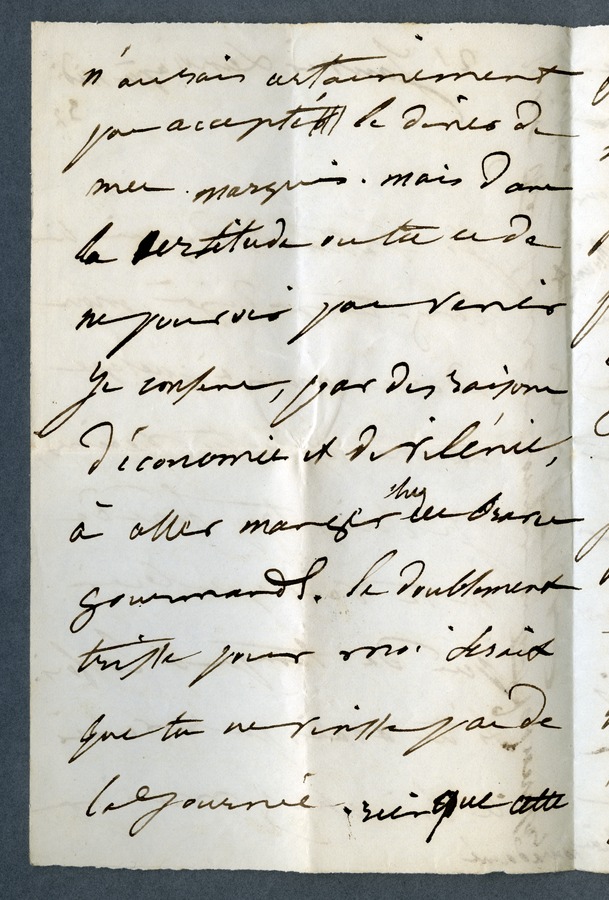 n'aurais certainement
pas accepté le diner de
mes marquis. mais dans
la certitude ou tu es de
ne pouvoir pas venir
je consens, par des raisons
d'économie et de vilénie,
à aller manger chez ces braves
gourmands. le doublement
triste pour moi serait
que tu ne vinsse pas de
la journée. rien que cette